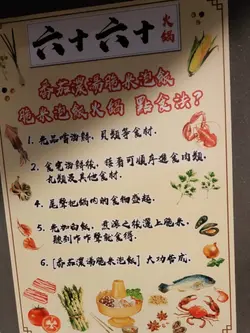 六十六十
火鍋
番茄濃湯脆米泡飯
脆米泡飯火鍋 點食法?
1. 先品嚐海鮮，貝類等食材.
2. 食完海鮮後，接著可順序進食肉類，
丸類及其他食材.
4. 尾聲把鍋內的食物撈起.
5. 先加白飯，煮滾之後灑上脆米，
聽到咋咋聲就食得.
6. [番茄濃湯脆米泡飯] 大功告成.